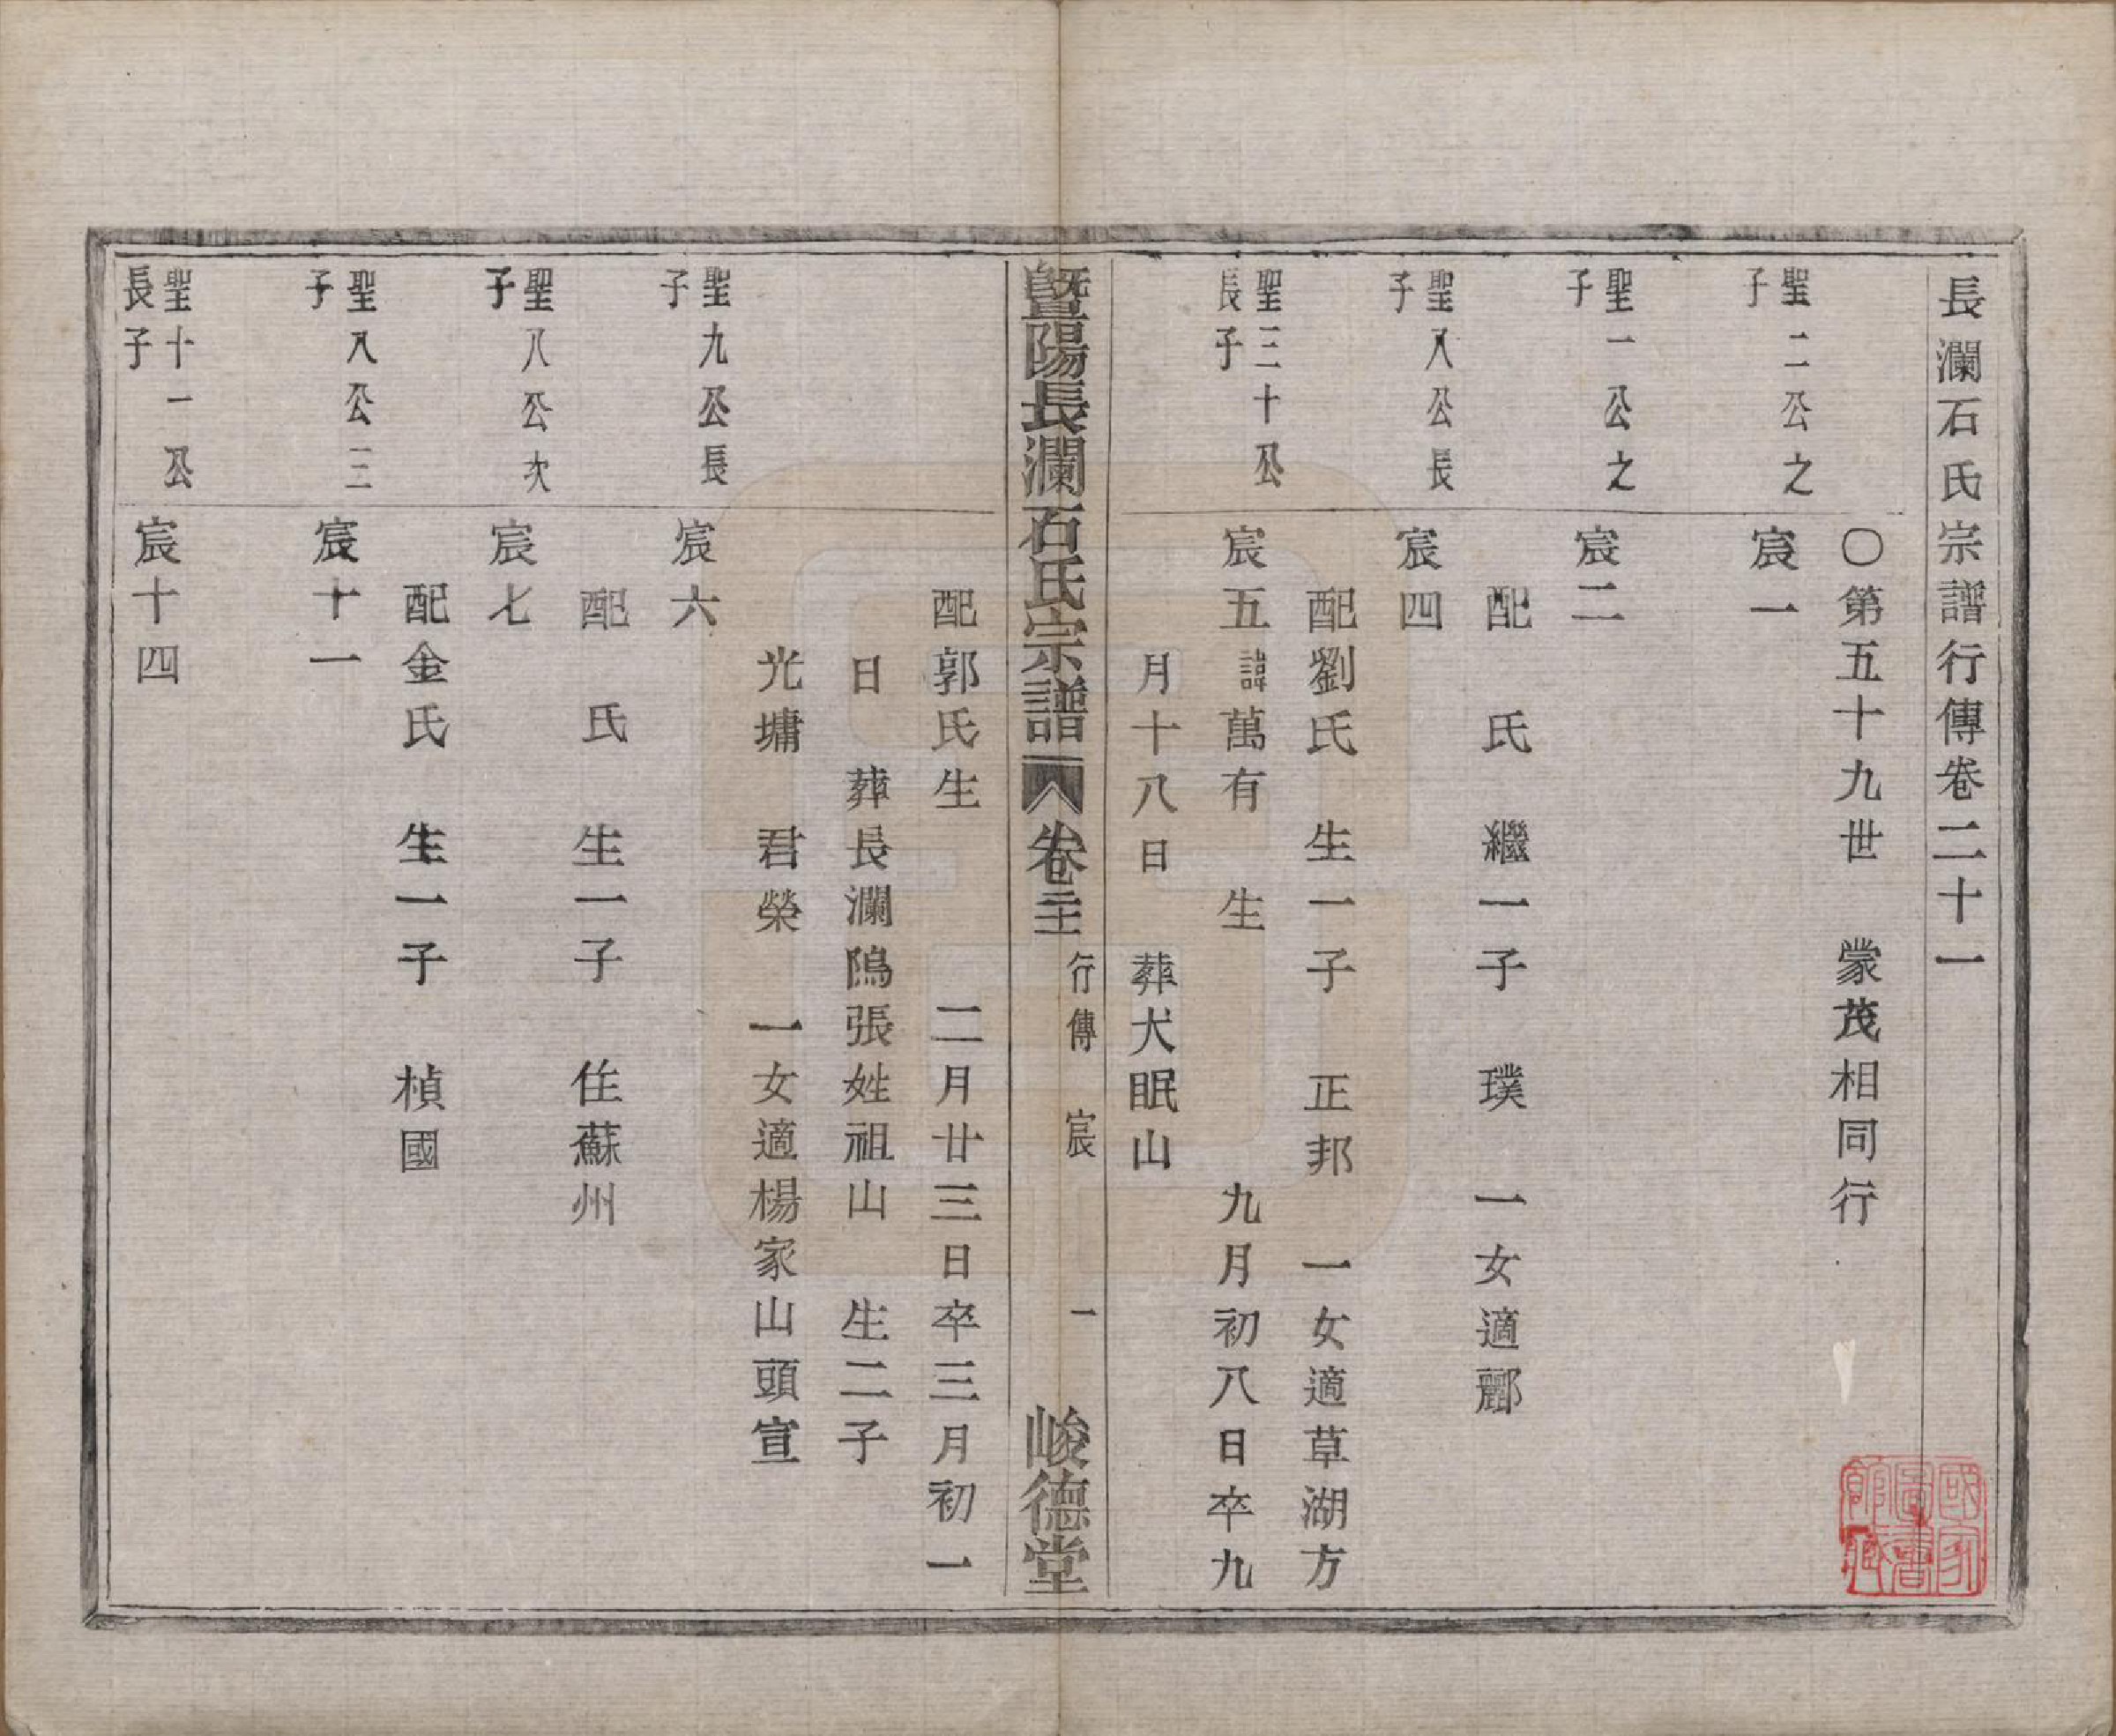 長瀾石氏宗譜行傳卷二十一
〇第五十九世 蒙茂相同行
聖二公之
子
宸一
聖一公之
子
宸二
配 氏 繼一子 璞 一女適酈
聖八公長
子
宸四
配劉氏 生一子 正邦 一女適草湖方
聖三十公
長子
宸五諱萬有 生 九月初八日卒九
月十八日 葬犬眠山
暨陽長瀾石氏宗譜 卷二十一 行傳 宸 一 峻德堂
配郭氏生 二月廿三日卒三月初一
日 葬長瀾隝張姓祖山 生二子
光墉 君榮 一女適楊家山頭宣
聖九公長
子
宸六
配 氏 生一子 住蘇州
聖八公次
子
宸七
配金氏 生一子 楨國
聖八公三
子
宸十一
聖十一公
長子
宸十四
國家圖書館藏